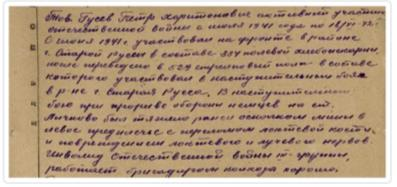 Тов. Гусев Петр Харитонович активный участник
отечественной войны с июля 1941 года по
С июня 1941 г. участвовал на фронте в районе
г. Старой Руссы в составе хлебопекарни
после переведено в 529 стрелковый полк в составе
которого участвовал в наступательных боях
в р-не г. Старая Русса. В наступательном
бою при прорыве обороны немцев на ст.
Лычково был тяжело ранен осколком мины в
левое предплечье с переломом локтевой кости,
и повреждением локтевого и лучевого нервов.
Инвалид Отечественной войны III группы,
работает бригадиром хорошо.